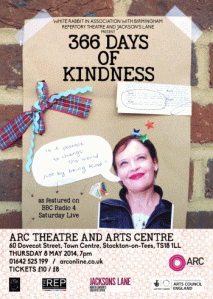 WHITE RABBIT IN ASSOCIATION WITH BIRMINGHAM
REPERTORY THEATRE AND JACKSONS LANE
PRESENT
366 DAYS
OF
KINDNESS
Is it possible
to change
the world
just by being kind?
as featured on
BBC Radio 4
Saturday Live
ARC THEATRE AND ARTS CENTRE
60 Dovecot Street, Town Centre, Stockton-on-Tees, TS18 1LL
THURSDAY 8 MAY 2014, 7pm
01642 525 199 / arconline.co.uk
TICKETS £10 / £8
ARC
REP
JACKSONS LANE
ARTS COUNCIL
ENGLAND